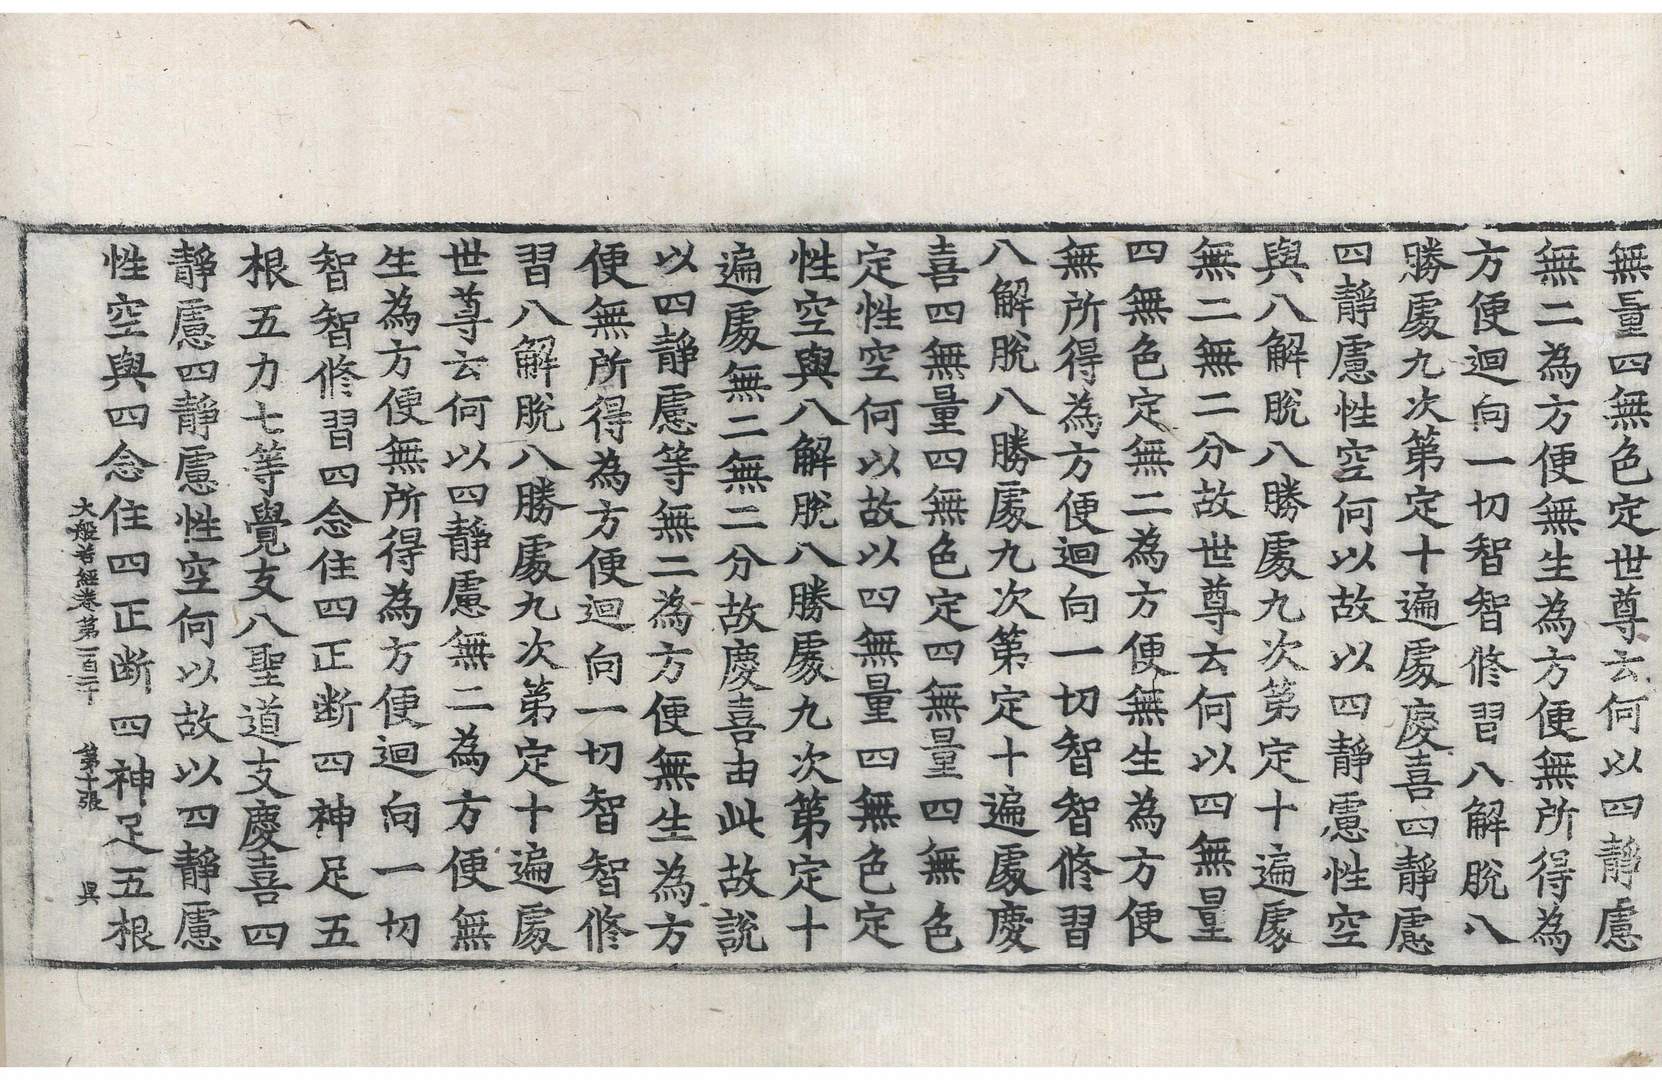 無量四無色定世尊云何以四靜慮
無二為方便無生為方便無所得為
方便迴向一切智智修習八解脫八
勝處九次第定十遍處慶喜四靜慮
四靜慮性空何以故以四靜慮性空
與八解脫八勝處九次第定十遍處
無二無二分故世尊云何以四無量
四無色定無二為方便無生為方便
無所得為方便迴向一切智智修習
八解脫八勝處九次第定十遍處慶
喜四無量四無色定四無量四無色
定性空何以故以四無量四無色定
性空與八解脫八勝處九次第定十
遍處無二無二分故慶喜由此故說
以四靜慮等無二為方便無生為方
便無所得為方便迴向一切智智修
習八解脫八勝處九次第定十遍處
世尊云何以四靜慮無二為方便無
生為方便無所得為方便迴向一切
智智修習四念住四正断四神足五
根五力七等覺支八聖道支慶喜四
靜慮四靜慮性空何以故以四靜慮
性空與四念住四正断四神足五根
大般若經卷第一百二十 第十張